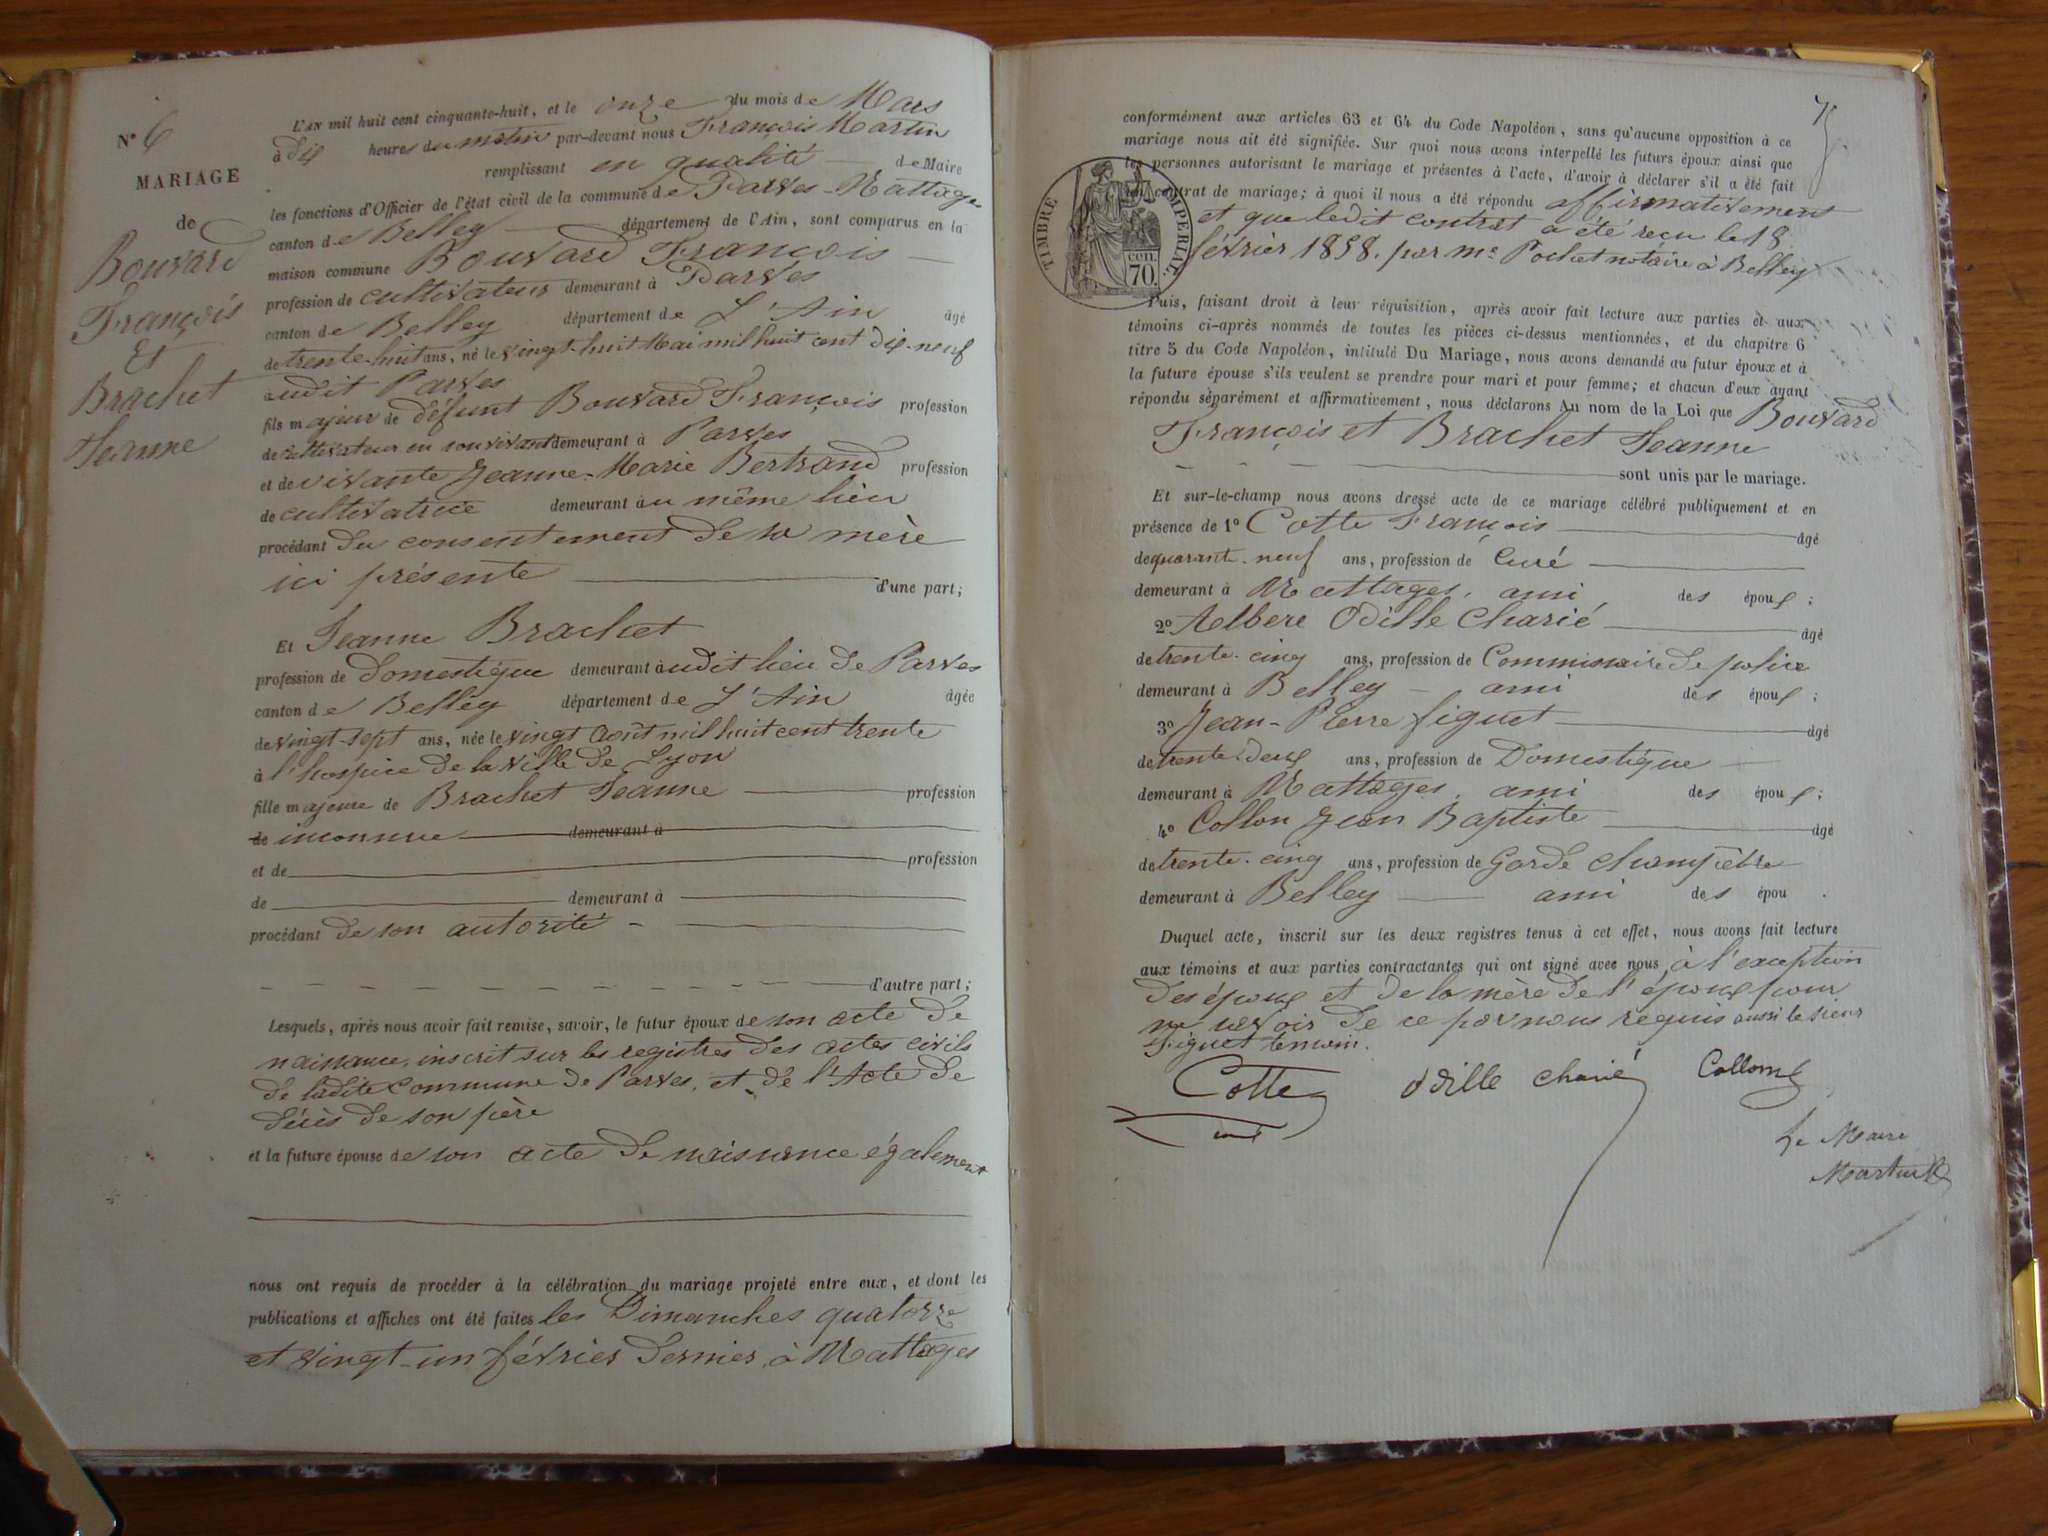 N° 6
MARIAGE
de
Bouvard
François
Et
Brachet
Jeanne
L'AN mil huit cent cinquante-huit, et le onze du mois de Mars
à dix heures du matin par-devant nous François Martin
remplissant en qualité de Maire
les fonctions d'Officier de l'état civil de la commune de Parves-Nattages
canton de Belley département de l'Ain, sont comparus en la
maison commune Bouvard François
profession de cultivateur demeurant à Parves
canton de Belley département de L'Ain âgé
de trente-huit ans, né le vingt-huit Mai mil huit cent dix-neuf
audit Parves
fils majeur de défunt Bouvard François profession
de cultivateur en son vivant demeurant à Parves
et de vivante Jeanne-Marie Bertrand profession
de cultivatrice demeurant au même lieu
procédant du consentement de sa mère
ici présente d'une part;
Et Jeanne Brachet
profession de Domestique demeurant audit lieu de Parves
canton de Belley département de L'Ain âgée
de vingt-sept ans, née le vingt Août mil huit cent trente
à l'hospice de la ville de Lyon
fille majeure de Brachet Jeanne profession
de inconnue demeurant à
et de profession
de demeurant à
procédant de son autorité
d'autre part;
Lesquels, après nous avoir fait remise, savoir, le futur époux de son acte de
naissance, inscrit sur les registres des actes civils
de ladite commune de Parves, et de l'Acte de
décès de son père
et la future épouse de son acte de naissance également
nous ont requis de procéder à la célébration du mariage projeté entre eux, et dont les
publications et affiches ont été faites les Dimanches quatorze
et vingt-un février dernier, à Nattages
7
conformément aux articles 63 et 64 du Code Napoléon, sans qu'aucune opposition à ce
mariage nous ait été signifiée. Sur quoi nous avons interpellé les futurs époux ainsi que
les personnes autorisant le mariage et présentes à l'acte, d'avoir à déclarer s'il a été fait
un contrat de mariage; à quoi il nous a été répondu affirmativement
et que ledit contrat a été reçu le 18
février 1858. par Me Pochet notaire à Belley
TIMBRE IMPERIAL
70 cen.
Puis, faisant droit à leur réquisition, après avoir fait lecture aux parties et aux
témoins ci-après nommés de toutes les pièces ci-dessus mentionnées, et du chapitre 6
titre 5 du Code Napoléon, intitulé Du Mariage, nous avons demandé au futur époux et à
la future épouse s'ils veulent se prendre pour mari et pour femme; et chacun d'eux ayant
répondu séparément et affirmativement, nous déclarons Au nom de la Loi que Bouvard
François et Brachet Jeanne
sont unis par le mariage.
Et sur-le-champ nous avons dressé acte de ce mariage célébré publiquement et en
présence de 1° Cotte François âgé
de quarante-neuf ans, profession de Curé
demeurant à Nattages, ami des époux;
2° Albere Odille Charié âgé
de trente-cinq ans, profession de Commissaire de police
demeurant à Belley ami des époux;
3° Jean-Pierre figuet âgé
de trente-deux ans, profession de Domestique
demeurant à Nattages, ami des époux;
4° Collon Jean Baptiste âgé
de trente-cinq ans, profession de Garde champêtre
demeurant à Belley ami des époux.
Duquel acte, inscrit sur les deux registres tenus à cet effet, nous avons fait lecture
aux témoins et aux parties contractantes qui ont signé avec nous, à l'exception
des époux et de la mère de l'époux pour
ne savoir de ce par nous requis aussi le sieur
Figuet temoin.
Cotte Odille Charié Collomb
curé
Le Maire
Martin